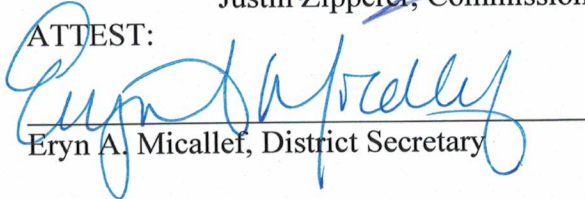 Justin Zipperer, Commission
ATTEST:
Eryn A. Micallef
Eryn A. Micallef, District Secretary